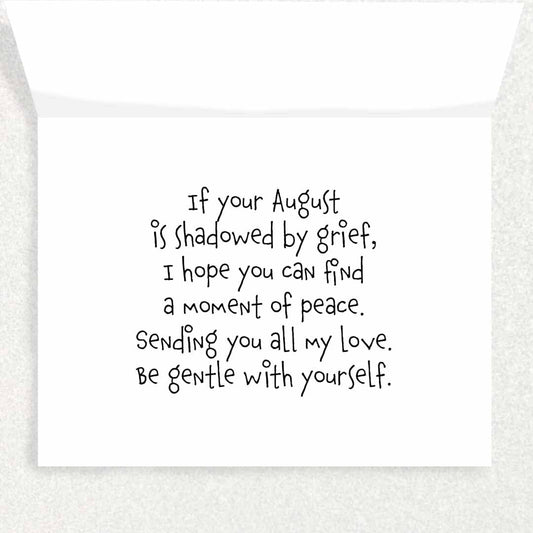 If your August
is shadowed by grief,
I hope you can find
a moment of peace.
Sending you all my love.
Be gentle with yourself.